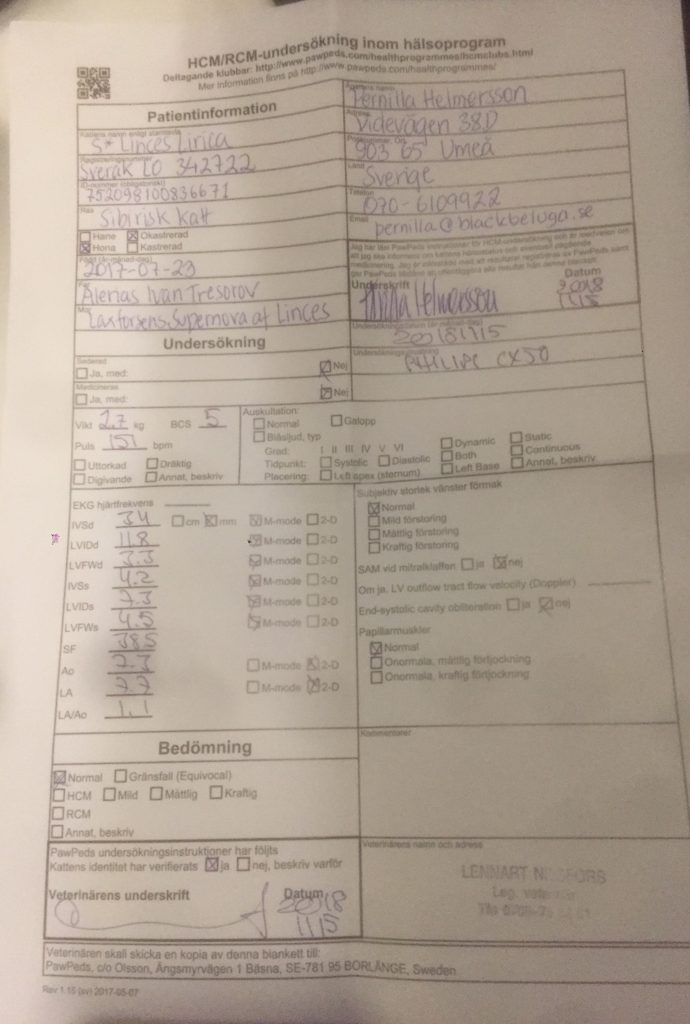 HCM/RCM-undersökning inom hälsoprogram
Deltagande klubbar: http://www.pawpeds.com/healthprogrammes/hcmclubs.html
Mer information finns på http://www.pawpeds.com/healthprogrammes/
Patientinformation
Kattens namn enligt stamtavla
S* Linces Lirica
Registreringsnummer
Sverak LO 342722
ID-nummer (obligatoriskt)
752098100836671
Ras
Sibirisk katt
Hane Okastrerad
Hona Kastrerad
Född (år-månad-dag)
2017-07-23
Far
Alenas Ivan Tresorov
Mor
Laxforsens Supernova af Linces
Ägarens namn
Pernilla Helmersson
Adress
Videvägen 38D
Postnummer, Ort
903 65 Umeå
Land
Sverige
Telefon
070-6109922
Email
pernilla@blackbeluga.se
Underskrift
Datum
Pernilla Helmersson
2018
1115
Undersökning
Undersökningsdatum (år-månad-dag)
20181115
Sederad
Ja, med: Nej
PHILIPS CX50
Medicineras
Ja, med: Nej
Vikt 2,7 kg BCS 5
Puls 151 bpm
Uttorkad Dräktig
Digivande Annat, beskriv
Auskultation:
Normal Galopp
Blåsljud, typ
Grad: I II III IV V VI
Tidpunkt: Systolic Diastolic
Placering: Left apex (sternum)
Dynamic Static
Both Continuous
Left Base Annat, beskriv
EKG hjärtfrekvens
IVSd 3.4 cm mm M-mode 2-D
LVIDd 11.8 M-mode 2-D
LVFWd 3.3 M-mode 2-D
IVSs 4.2 M-mode 2-D
LVIDs 7.3 M-mode 2-D
LVFWs 4.5 M-mode 2-D
SF 38.5
Ao 7.3 M-mode 2-D
LA 7.7 M-mode 2-D
LA/Ao 1.1
Subjektiv storlek vänster förmak
Normal
Mild förstoring
Måttlig förstoring
Kraftig förstoring
SAM vid mitralklaffen ja nej
Om ja, LV outflow tract flow velocity (Doppler)
End-systolic cavity obliteration ja nej
Papillarmuskler
Normal
Onormala, måttlig förtjockning
Onormala, kraftig förtjockning
Bedömning
Normal Gränsfall (Equivocal)
HCM Mild Måttlig Kraftig
RCM
Annat, beskriv
Kommentarer
PawPeds undersökningsinstruktioner har följts
Kattens identitet har verifierats ja nej, beskriv varför
Veterinärens underskrift Datum
2018
1115
Veterinärens namn och adress
LENNART
Leg.
Veterinären skall skicka en kopia av denna blankett till:
PawPeds, c/o Olsson, Ängsmyrvägen 1 Bäsna, SE-781 95 BORLÄNGE, Sweden
Rev 1.15 (sv) 2017-05-07